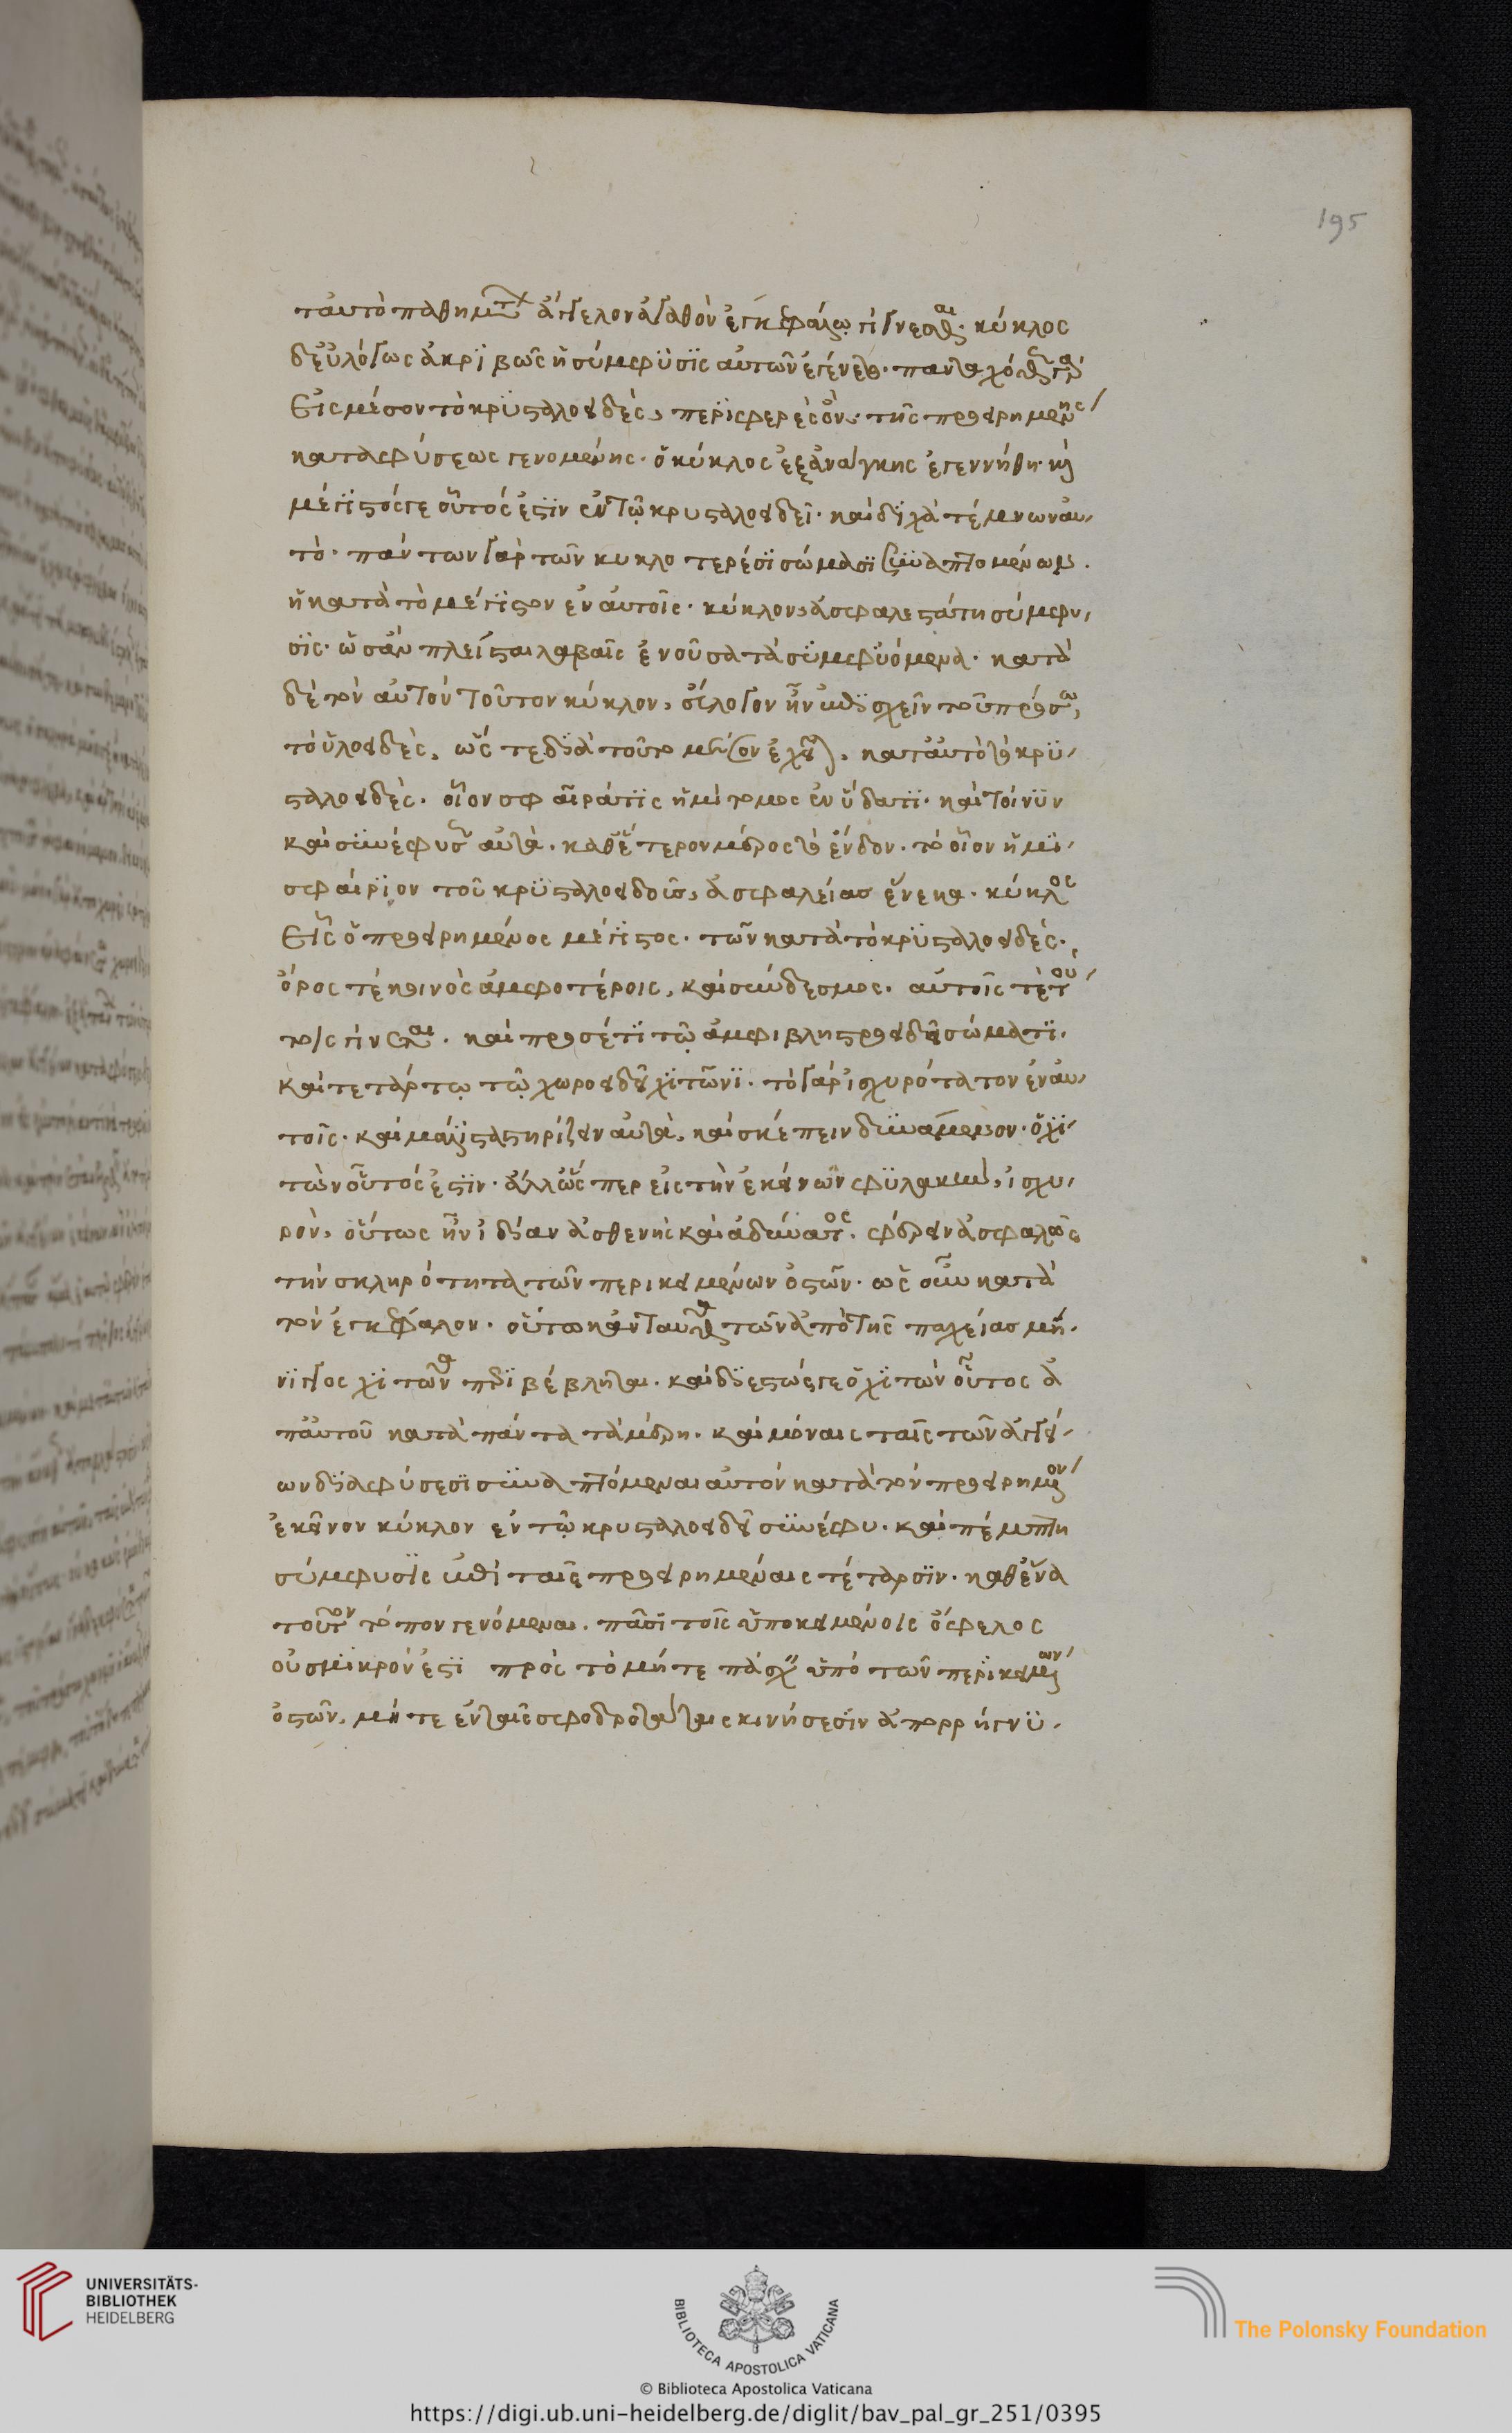 195
ταυτὸ παθημάτων ἄγγελον ἀγαθὸν ἐγκεφάλῳ γίγνεσθαι· κύκλος
δ' εὐλόγως ἀκριβῶς ἡ σύμφυσις αὐτῶν ἐγένετο· πανταχόθεν γὰρ
εἰς μέσον τὸ κρυσταλλοειδὲς, περιφερὲς ὂν, τῆς προειρημένης
καταφύσεως γενομένης· ὁ κύκλος ἐξ ἀνάγκης ἐγεννήθη· καὶ
μέγιστός γε οὗτός ἐστιν ἐν τῷ κρυσταλοειδεῖ· καὶ δίχα τέμνων αὐ
τὸ· πάντων γὰρ τῶν κυκλοτερέσι σώμασι συναπτομένων·
ἡ κατὰ τὸ μέγιστον ἐν αὐτοῖς· κύκλον ἀσφαλεστάτη σύμφυ
σις· ὡσὰν πλείσται λαβαῖς ἑνοῦσα τὰ συμφυόμενα· κατὰ
δὲ τὸν αὐτὸν τοῦτον κύκλον, εὔλογον ἦν ἐπισχεῖν τοῦ πρόσω,
τὸ ὑλοειδὲς, ὥς τε διὰ τοῦτο μεῖζον κατ' αὐτὸ τὸ κρυ
σταλοειδὲς· οἷον σφαῖρα τις ἡμίτομος ἐν ὕδατι· καὶ τοίνυν
καὶ συνέφυσεν αὐτὰ· καθ' ἕτερον μέρος τὸ ἔνδον· τὸ οἷον ἡμι
σφαίριον τοῦ κρυσταλοειδοῦς, ἀσφαλείας ἕνεκα· κύκλος
εἷς ὁ προειρημένος μέγιστος· τῶν κατὰ τὸ κρυσταλοειδὲς·
ὅρος τε κοινὸς ἀμφοτέροις, καὶ σύνδεσμος· αὐτοῖς τε τού
τοις γίνεται· καὶ προσέτι τῷ ἀμφιβληστροειδεῖ σώματι·
καὶ τετάρτῳ τῷ χωροειδεῖ χιτῶνι· τὸ γὰρ ἰσχυρότατον ἐν αὐ
τοῖς· καὶ μάλιστα στηρίζειν αὐτὰ, καὶ σκέπειν δυνάμενον· ὁ χι
τὼν οὗτός ἐστιν· ἀλλ' ὥς περ εἰς τὴν ἐκείνων φυλακὴν, ἰσχυ
ρὸν, οὕτως ἦν ἰδίαν ἀσθενὴς καὶ ἀδύνατος· φέρειν ἀσφαλῶς
τὴν σκληρότητα τῶν περικειμένων ὀστῶν· ὡς οὖν κατὰ
τὸν ἐγκέφαλον· οὕτω κἀνταῦθα τῶν ἀπὸ τῆς παχείας μή
νιγγος χιτῶνα περιβέβληται· καὶ διεστώς γε ὁ χιτὼν οὗτος ἀ
π' αὐτοῦ κατὰ πάντα τὰ μέρη· καὶ μόναις ταῖς τῶν ἀγγεί
ων διαφύσεσι συναπτόμεναι αὐτὸν κατὰ τὸν προειρημένον
ἐκεῖνον κύκλον ἐν τῷ κρυσταλοειδεῖ συνέφυ· καὶ πέμπτη
σύμφυσις ἐπὶ ταῖς προειρημέναις τέταρσιν· καθ' ἕνα
τοῦτον τόπον γενόμεναι· πᾶσι τοῖς ὑποκειμένοις ὄφελος
οὐ σμικρόν ἐστι πρὸς τὸ μήτε πάσχειν ὑπὸ τῶν περικειμένων
ὀστῶν, μήτε ἐν ταῖς σφοδροτάταις κινήσεσιν ἀπορρήγνυ
UNIVERSITÄTS-
BIBLIOTHEK
HEIDELBERG
BIBLIOTECA APOSTOLICA VATICANA
The Polonsky Foundation
© Biblioteca Apostolica Vaticana
https://digi.ub.uni-heidelberg.de/diglit/bav_pal_gr_251/0395